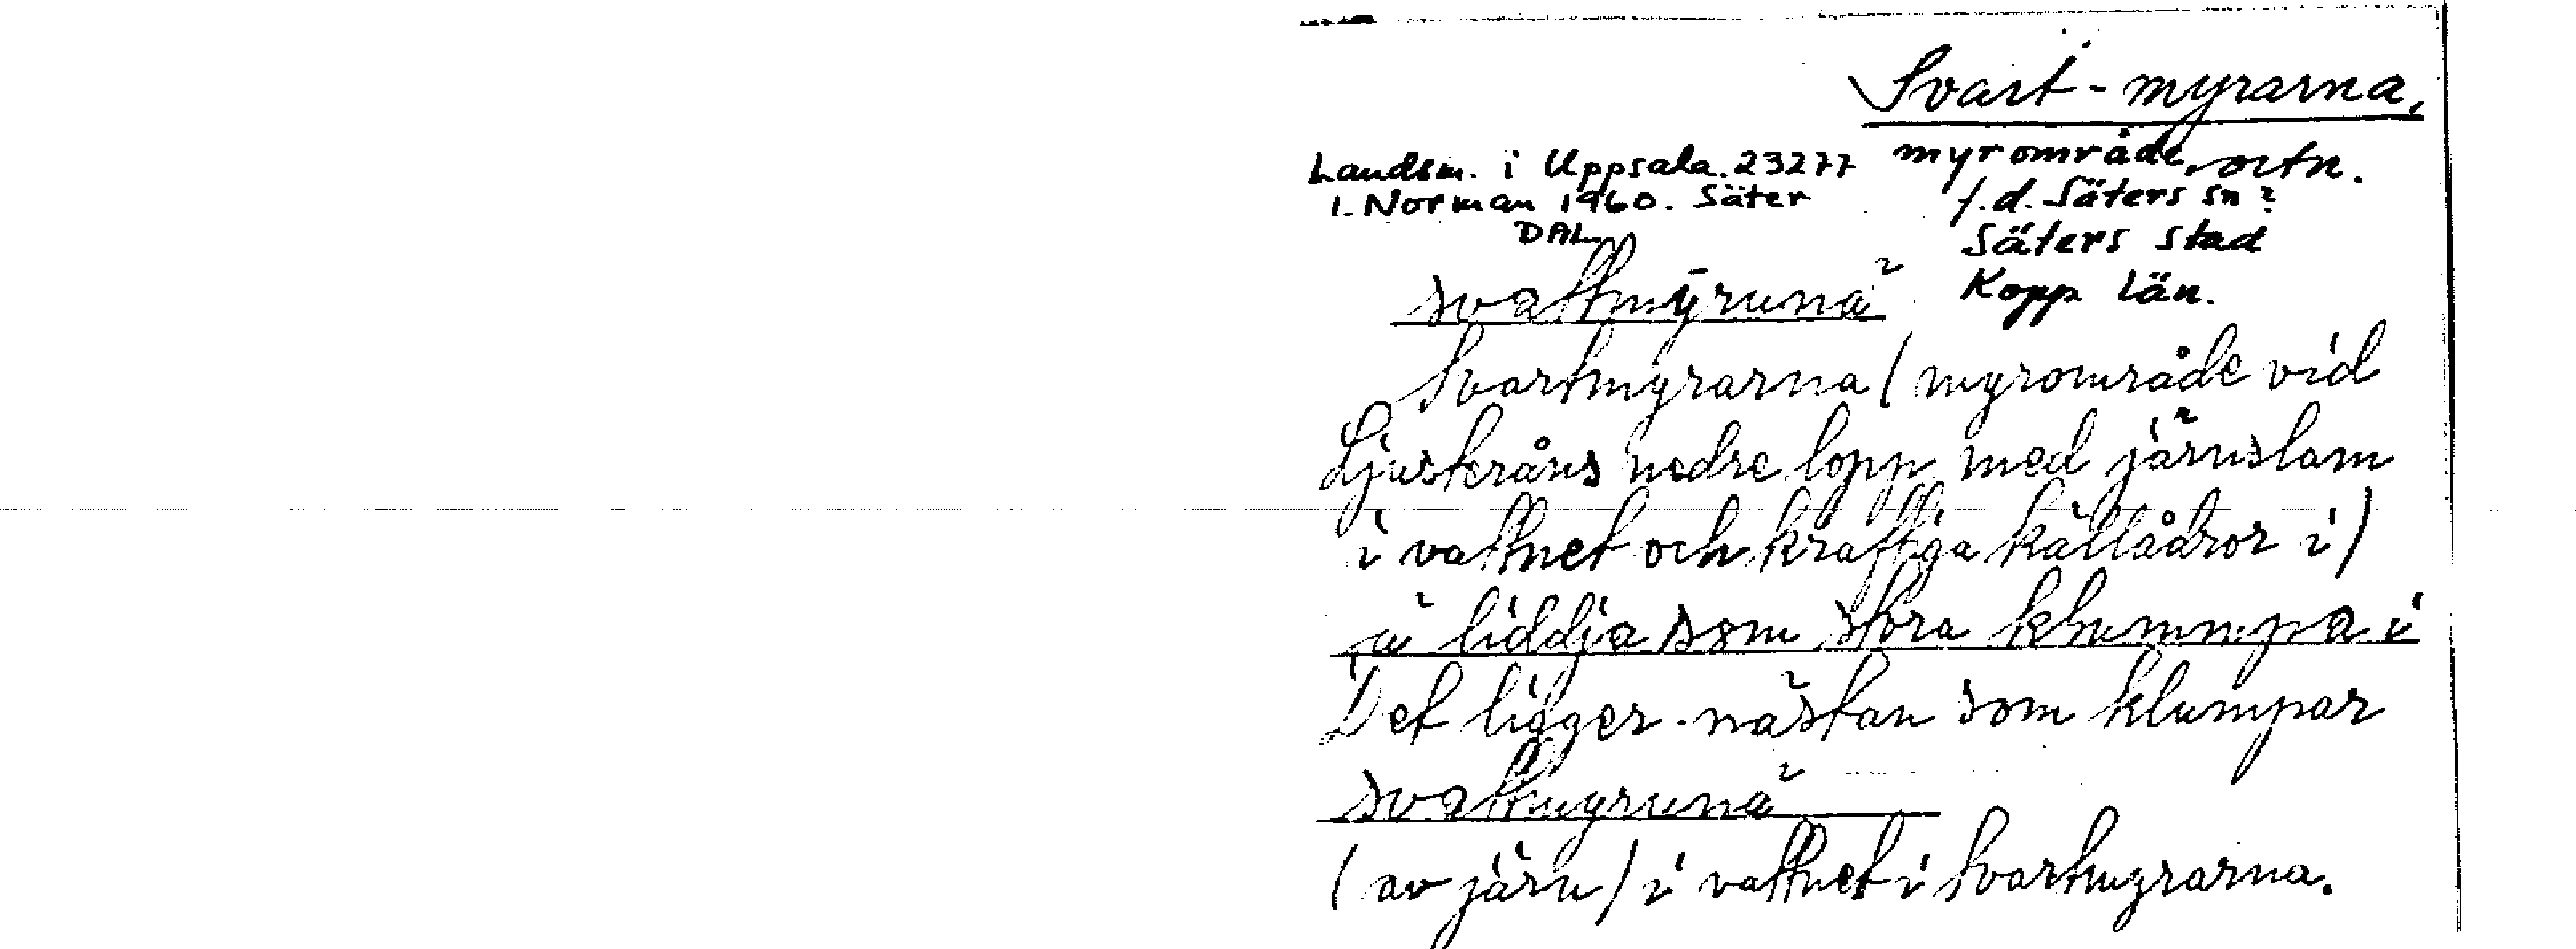 Svart-myrarna,
myrområde, ortn.
f.d. Säters sn?
Säters stad
Kopp län.
Landsm. i Uppsala. 23277
I. Norman 1960. Säter
DAL
svattmȳrunä
Svartmyrarna (myrområde vid
Ljusteråns nedre lopp med järnslam
i vattnet och kraftiga källådror i)
liddja som stora klummpa i
Det ligger nästan som klumpar
svattmyrunä
(av järn) i vattnet i Svartmyrarna.